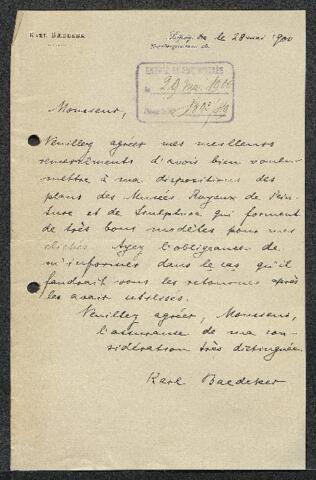 KARL BÆDEKER
le 28 mai 1900
29 Mai 1900
Monsieur,
Veuillez agréer mes meilleurs
remerciments d'avoir bien voulu
mettre à ma disposition des
plans des Musées Royaux de Pein-
ture et de Sculpture qui forment
de très bons modèles pour mes
clichés. Ayez l'obligeance de
m'informer dans le cas qu'il
faudrait vous les retourner après
les avoir utilisés.
Veuillez agréer, Monsieur,
l'assurance de ma con-
sidération très distinguée.
Karl Baedeker